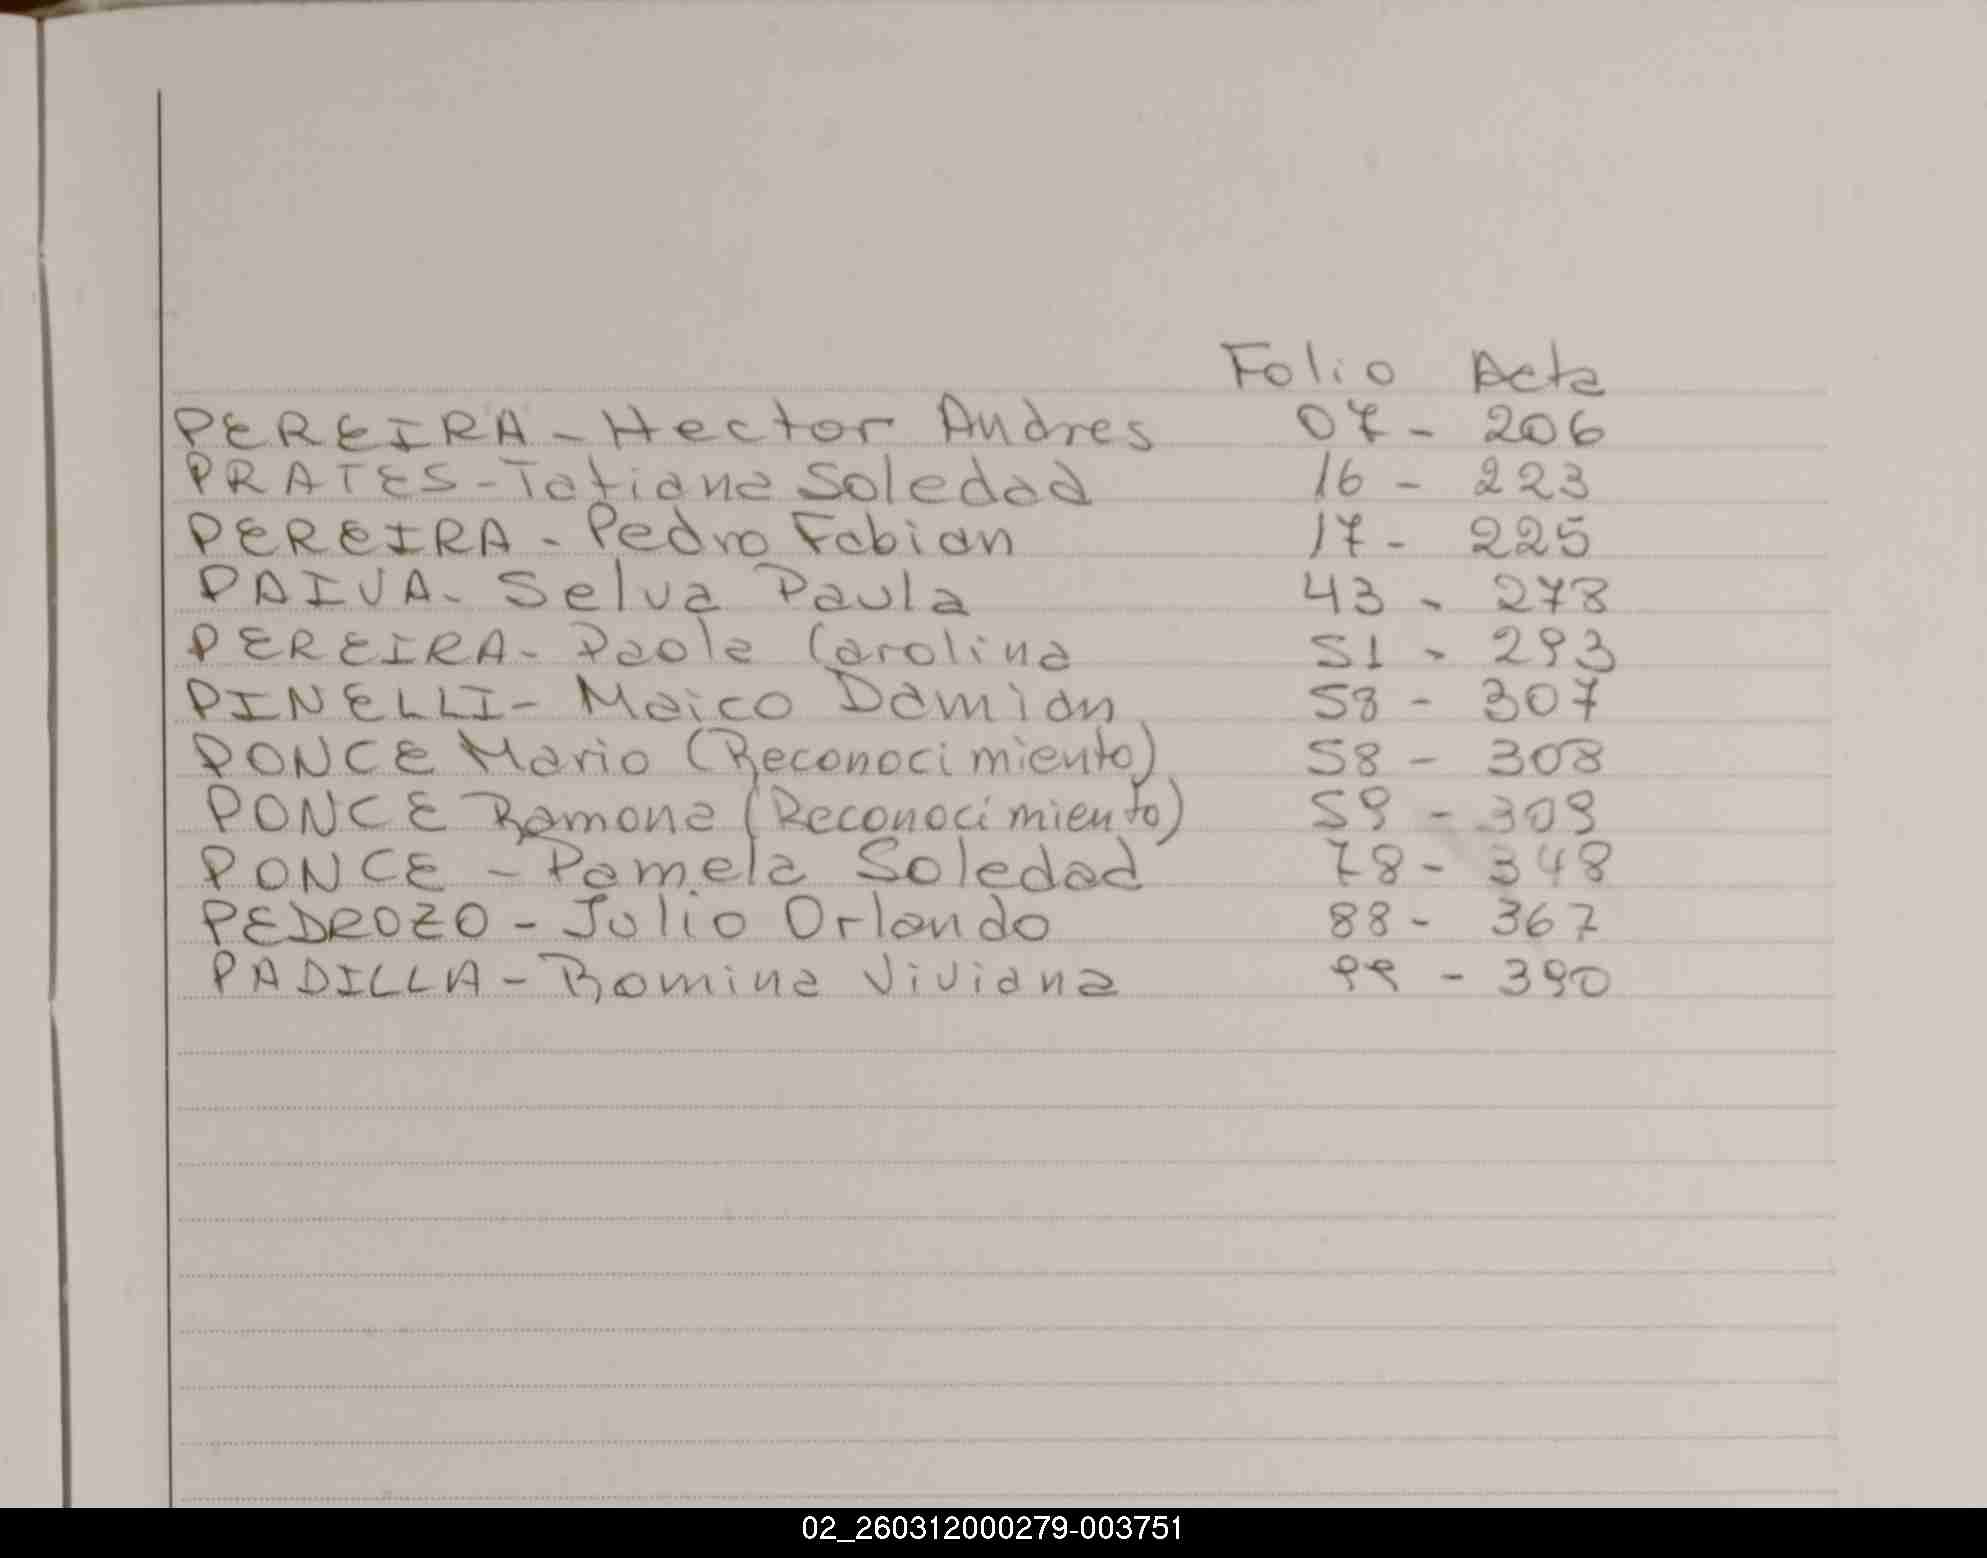 Folio Acta
PEREIRA - Hector Andres 07 - 206
PRATES - Tatiana Soledad 16 - 223
PEREIRA - Pedro Fabian 17 - 225
PAIVA - Selva Paula 43 - 278
PEREIRA - Paola Carolina 51 - 293
PINELLI - Maico Damian 58 - 307
PONCE Mario (Reconocimiento) 58 - 308
PONCE Ramona (Reconocimiento) 59 - 309
PONCE - Pamela Soledad 78 - 348
PEDROZO - Julio Orlando 88 - 367
PADILLA - Romina Viviana 99 - 390
02_260312000279-003751